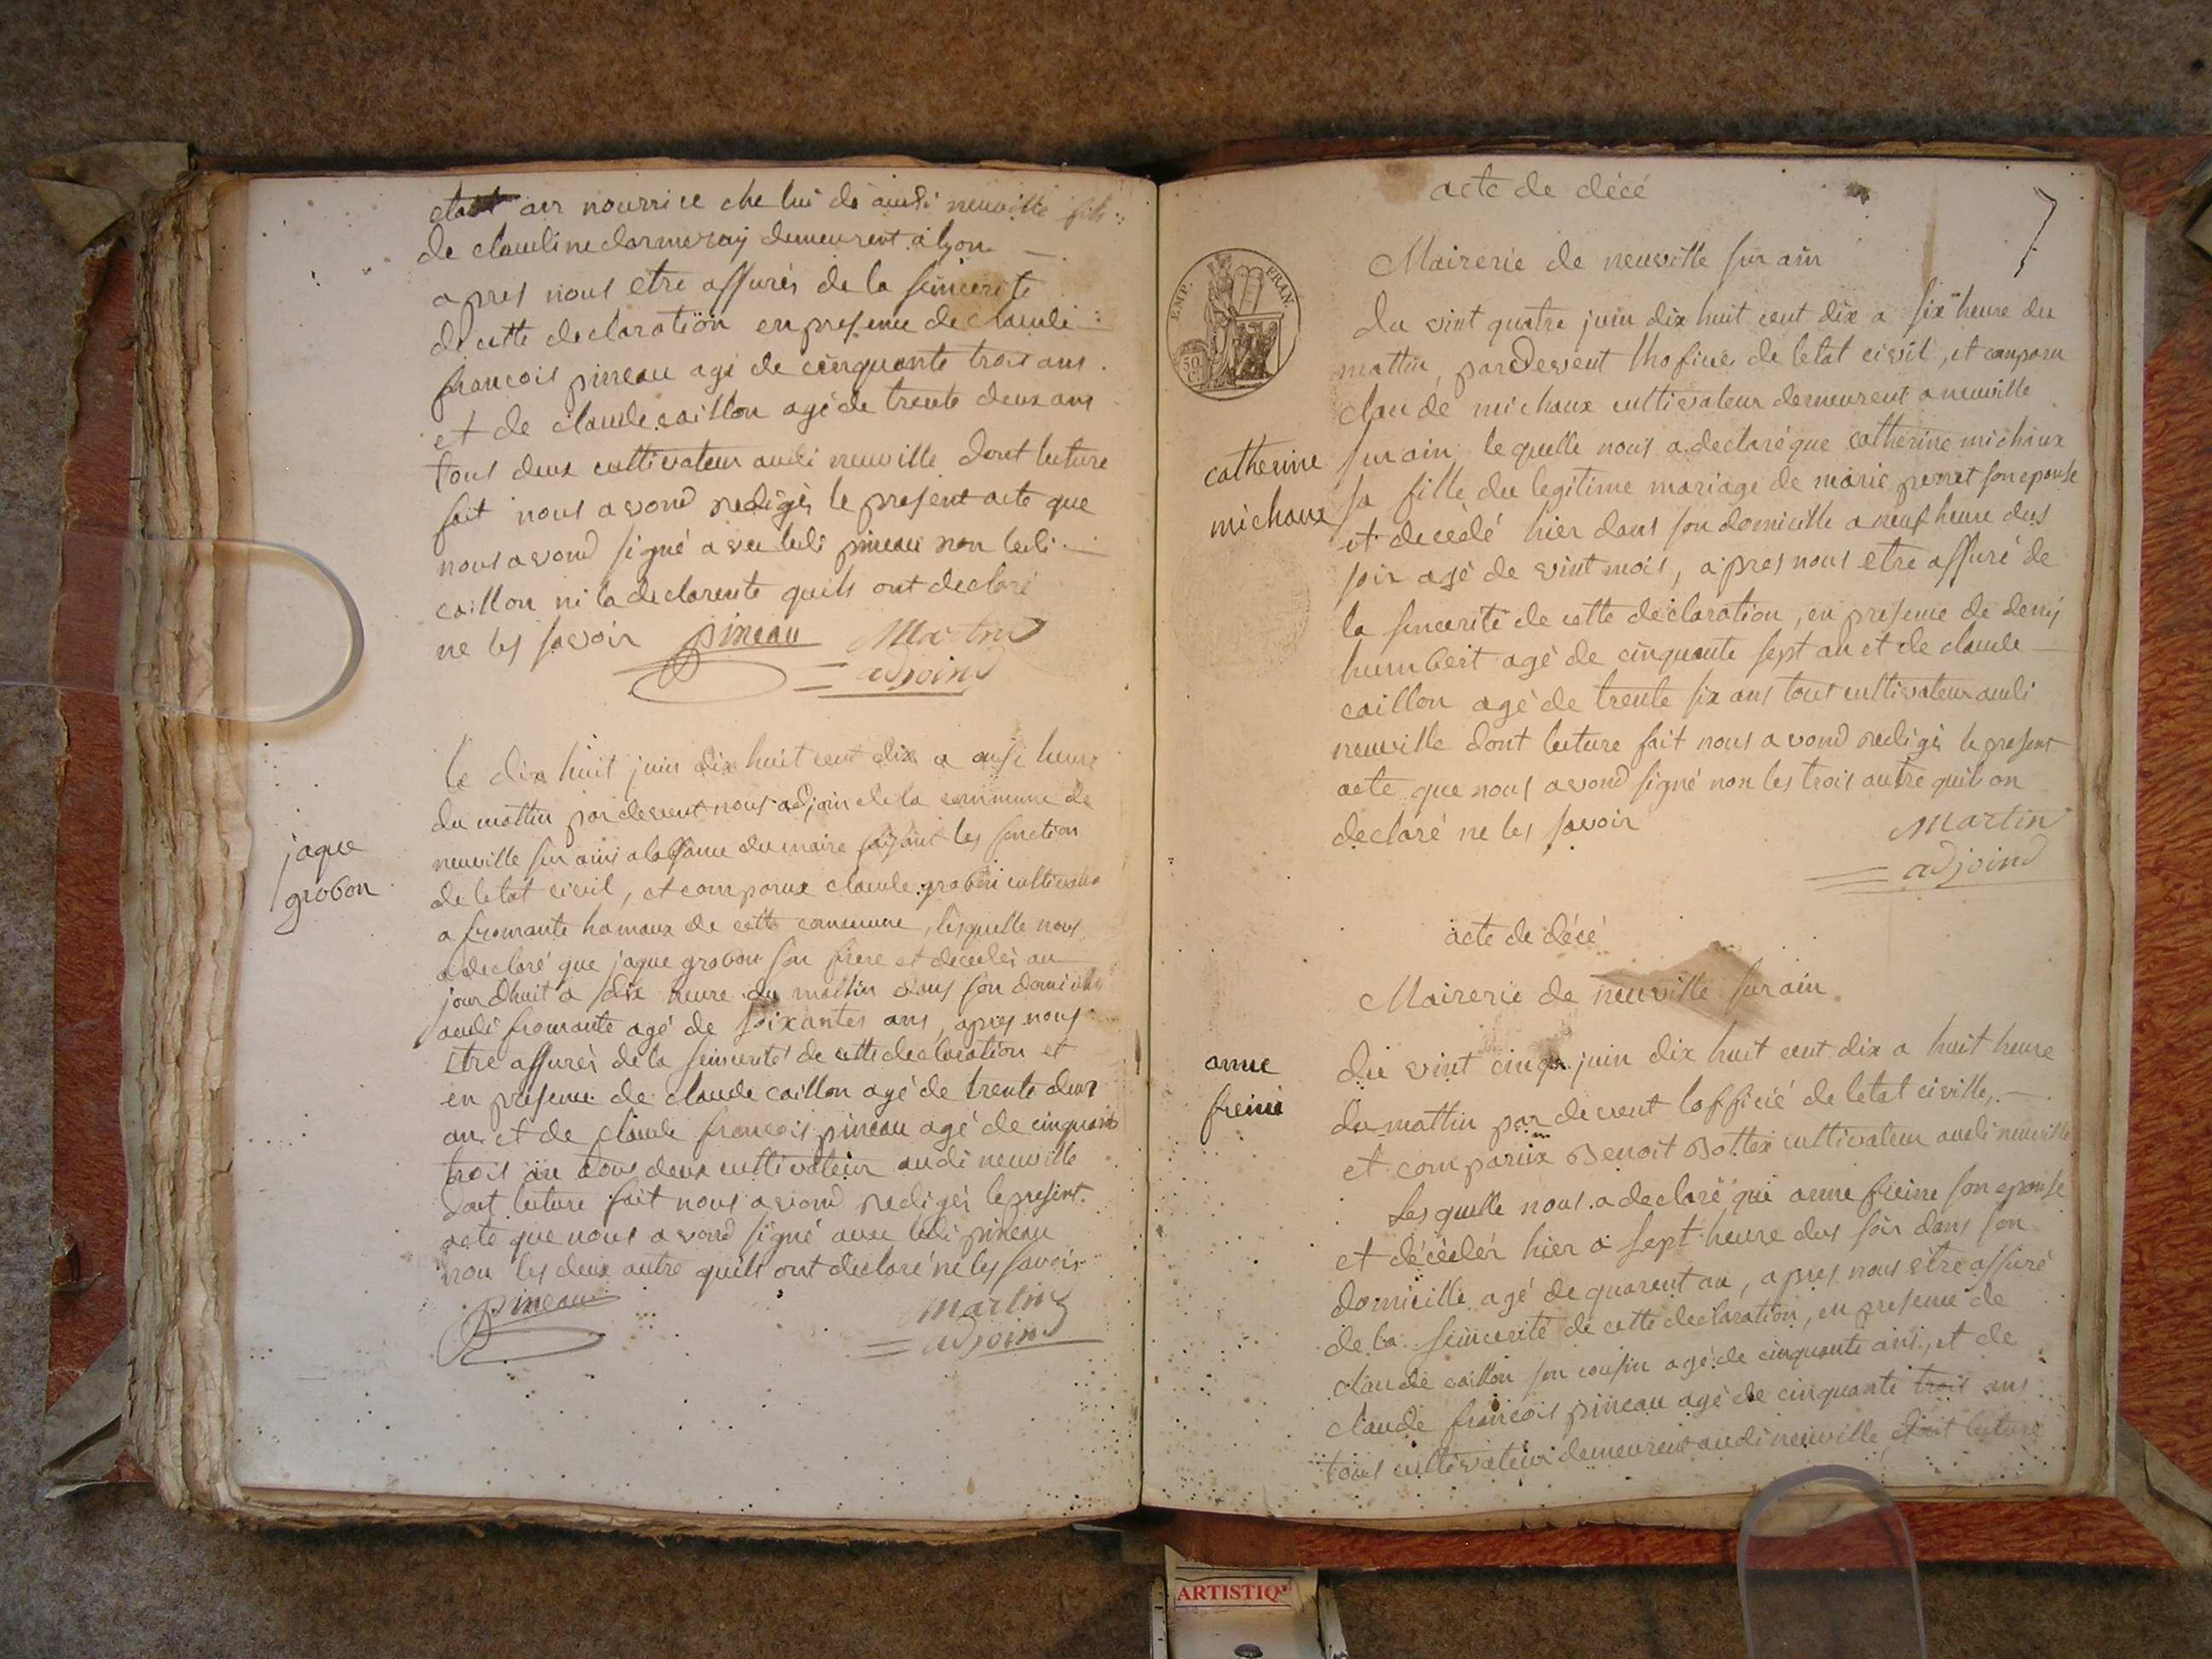 etant aur nourrice che lui di audi neuville fils
de claudine darmeray demeurent a lyon
apres nous etre assurés de la sincerite
de cette declaration en presence de claude
francois pineau agé de cinquante trois ans
et de claude caillon agé de trente deux ans
tous deux cultivateur audi neuville dont lecture
fait nous avond redigés le present acte que
nous avond signé avec ledi pineau non ledi
caillon ni la declarente quils ont declaré
ne les savoir pineau Martin
adjoind
le dix huit juin dix huit cent dix a onse heure
du mattin par devent nous adjoin de la commune de
neuville sur ain a labsance du maire faisant les fonction
de letat civil, et comparux claude grobon cultivateur
a fromante hamaux de cette commune, lesquelle nous
a declaré que jaque grobon son frere et decedés au
jourdhuit a dix heure du mattin dans son domicille
audi fromante agé de soixantes ans, apres nous
etre assurés de la sincerité de cette declaration et
en presence de claude caillon agé de trente deux
an et de claude francois pineau agé de cinquante
trois an tous deux cultivateur audi neuville
dont lecture fait nous avond redigés le present
acte que nous avond signé avec ledi pineau
non les deux autre quils ont declaré ne les savoir
pineau martin
adjoind
jaque
grobon
acte de décé
7
Mairerie de neuville sur ain
EMP. FRAN.
50
C.
du vint quatre juin dix huit cent dix a six heure du
mattin, par devent lhoficié de letat civil, et comparu
claude michaux cultivateur demeurent a neuville
sur ain lequelle nous a declaré que catherine michaux
sa fille du legitime mariage de marie perret son epouse
et decédé hier dans son domicille a neuf heure dus
soir agé de vint mois, apres nous etre assuré de
la sincerité de cette declaration, en presence de denis
humbert agé de cinquante sept an et de claude
caillon agé de trente six ans tous cultivateur audi
neuville dont lecture fait nous avond redigés le present
acte que nous avond signé non les trois autre quil on
declaré ne les savoir Martin
adjoind
catherine
michaux
acte de décé
Mairerie de neuville sur ain
du vint cinq juin dix huit cent dix a huit heure
du mattin par devent lofficié de letat civille,
et comparux Benoit Bottex cultivateur audi neuville
Lesquelle nous a declaré que anne freine son epouse
et décéder hier a sept heure dus soir dans son
domicille agé de quarent an, apres nous être assuré
de la sincerité de cette declaration, en presence de
claude caillon son cousin agé de cinquante ans, et de
claude francois pineau agé de cinquante trois ans
tous cultivateur demeurent audi neuville dont lecture
anne
freine
ARTISTIQ